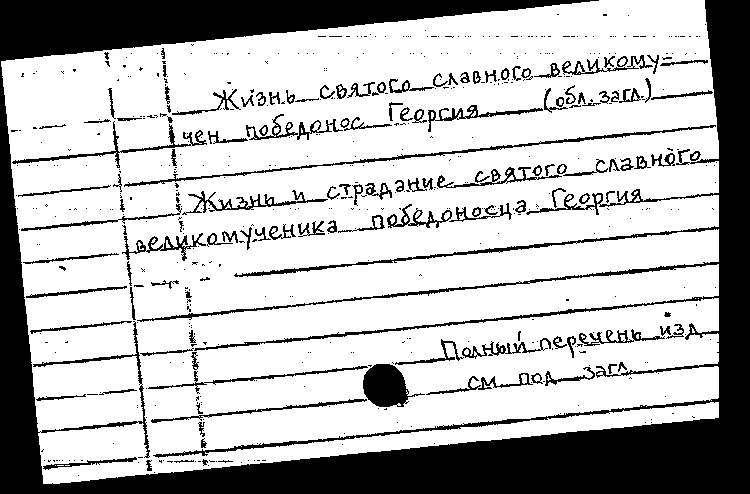 Жизнь святого славного великому=
чен. победонос Георгия (обл. загл.)
Жизнь и страдание святого славного
великомученика победоносца Георгия
Полный перечень изд
см под загл.